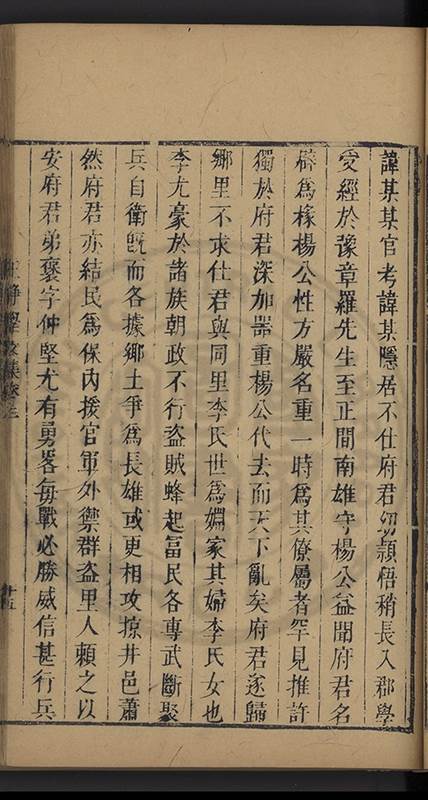 諱某某官考諱某隱居不仕府君幼穎悟稍長入郡學
受經於豫章羅先生至正間南雄守楊公益聞府君名
辟為掾楊公性方嚴名重一時為其僚屬者罕見推許
獨於府君深加器重楊公代去而天下亂矣府君遂歸
鄉里不求仕君與同里李氏世為婣家其婦李氏女也
李尤豪於諸族朝政不行盜賊蜂起富民各專武斷聚
兵自衛既而各據鄉土爭為長雄或更相攻掠井邑蕭
然府君亦結民為保內援官軍外禦群盜里人賴之以
安府君弟褒字仲堅尤有勇畧每戰必勝威信甚行兵